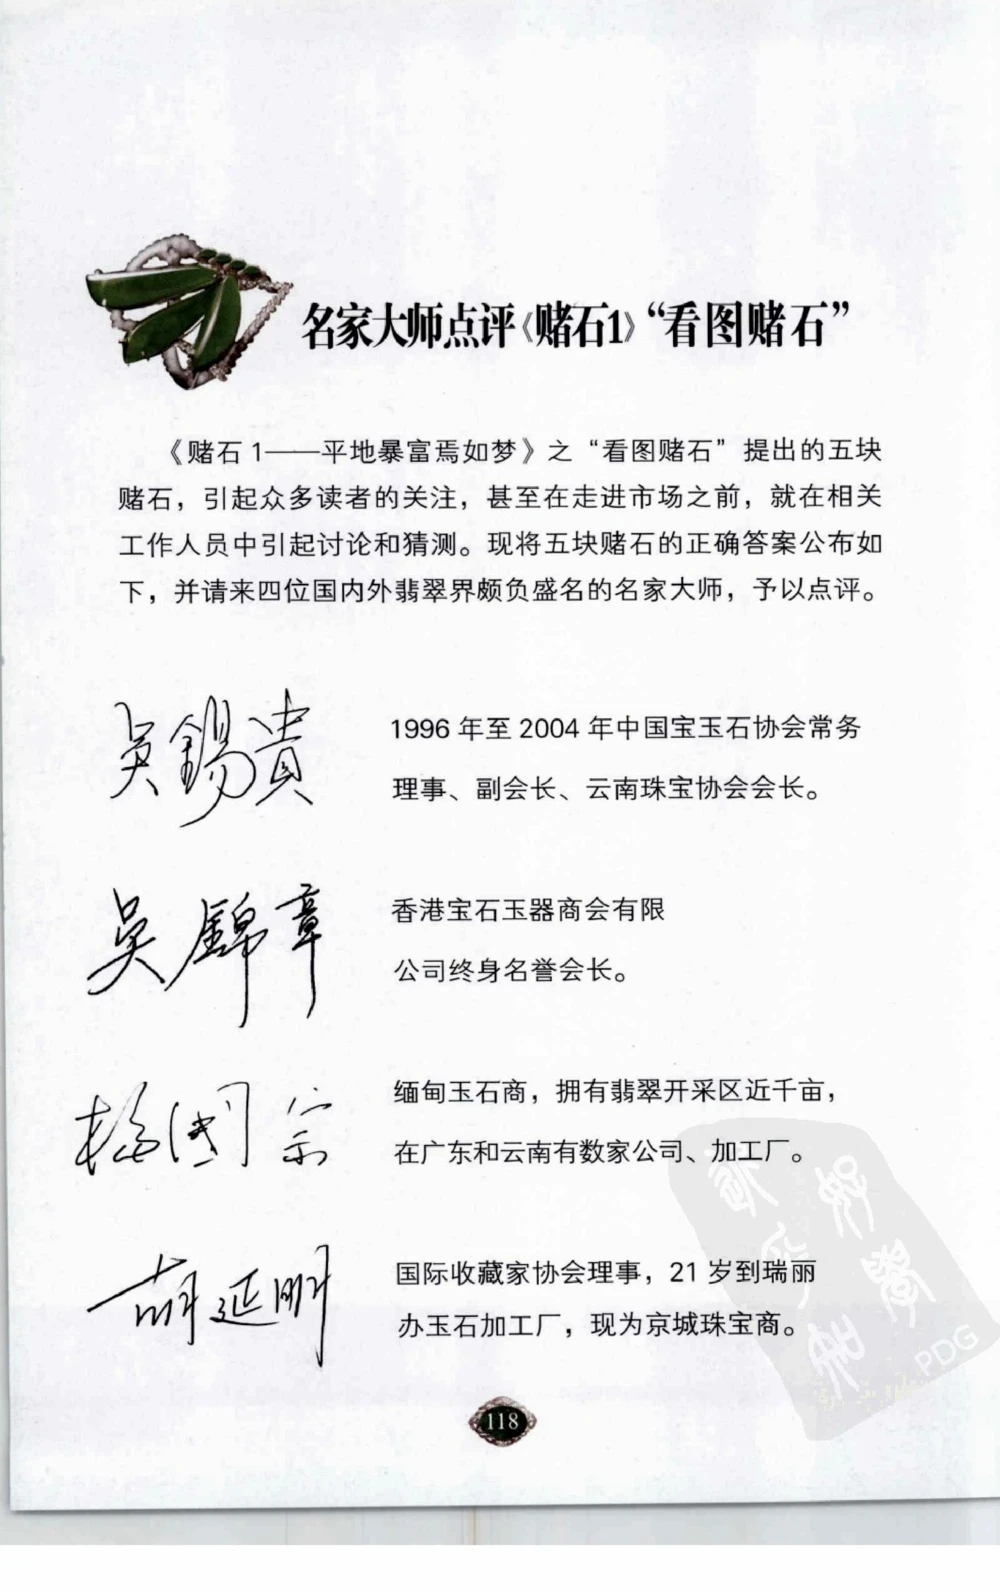 名家大师点评《赌石1》“看图赌石”
《赌石 1——平地暴富焉如梦》之“看图赌石”提出的五块
赌石，引起众多读者的关注，甚至在走进市场之前，就在相关
工作人员中引起讨论和猜测。现将五块赌石的正确答案公布如
下，并请来四位国内外翡翠界颇负盛名的名家大师，予以点评。
吴錫貴
1996 年至 2004 年中国宝玉石协会常务
理事、副会长、云南珠宝协会会长。
吴錦章
香港宝石玉器商会有限
公司终身名誉会长。
國宗
缅甸玉石商，拥有翡翠开采区近千亩，
在广东和云南有数家公司、加工厂。
延明
国际收藏家协会理事，21 岁到瑞丽
办玉石加工厂，现为京城珠宝商。
PDG
118